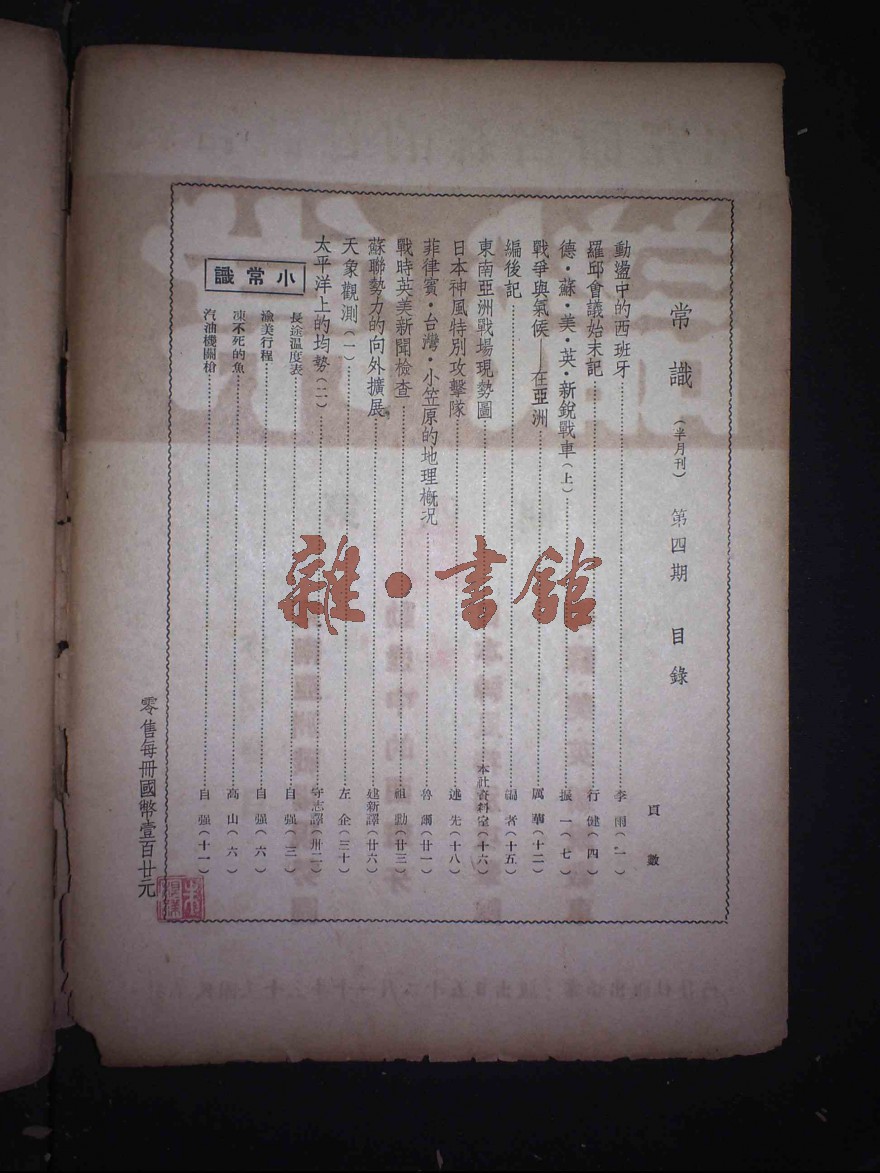 常識（半月刊）第四期　目錄
頁數
動盪中的西班牙……李雨（一）
羅邱會議始末記……行健（四）
德・蘇・美・英・新銳戰車（上）……振一（七）
戰爭與氣候——在亞洲……厲華（十二）
編後記……編者（十五）
東南亞洲戰場現勢圖……本社資料室（十六）
日本神風特別攻擊隊……述先（十八）
菲律賓・台灣・小笠原的地理概況……魯（廿一）
戰時英美新聞檢查……祖勳（廿三）
蘇聯勢力的向外擴展……建新譯（廿六）
天象觀測（一）……左企（三十）
太平洋上的均勢（二）……守志譯（卅二）
小常識
長途温度表……自强（三）
渝美行程……自强（六）
凍不死的魚……高山（六）
汽油機關槍……自强（十一）
零售每冊國幣壹百廿元
雜・書館